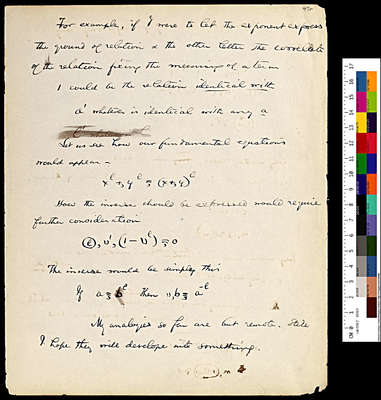 For example, if I were to let the exponent express
the ground of relation & the other letter the correlate
of the relation fixing the meaning of a term
1 could be the relation identical with
a' whatever is identical with any a
Let us see how our fundamental equations
would appear –
How the inverse should be expressed would require
further consideration
The inverse would be simply this
If then
My analogies so far are but remote. Still
I hope they will develope into something.